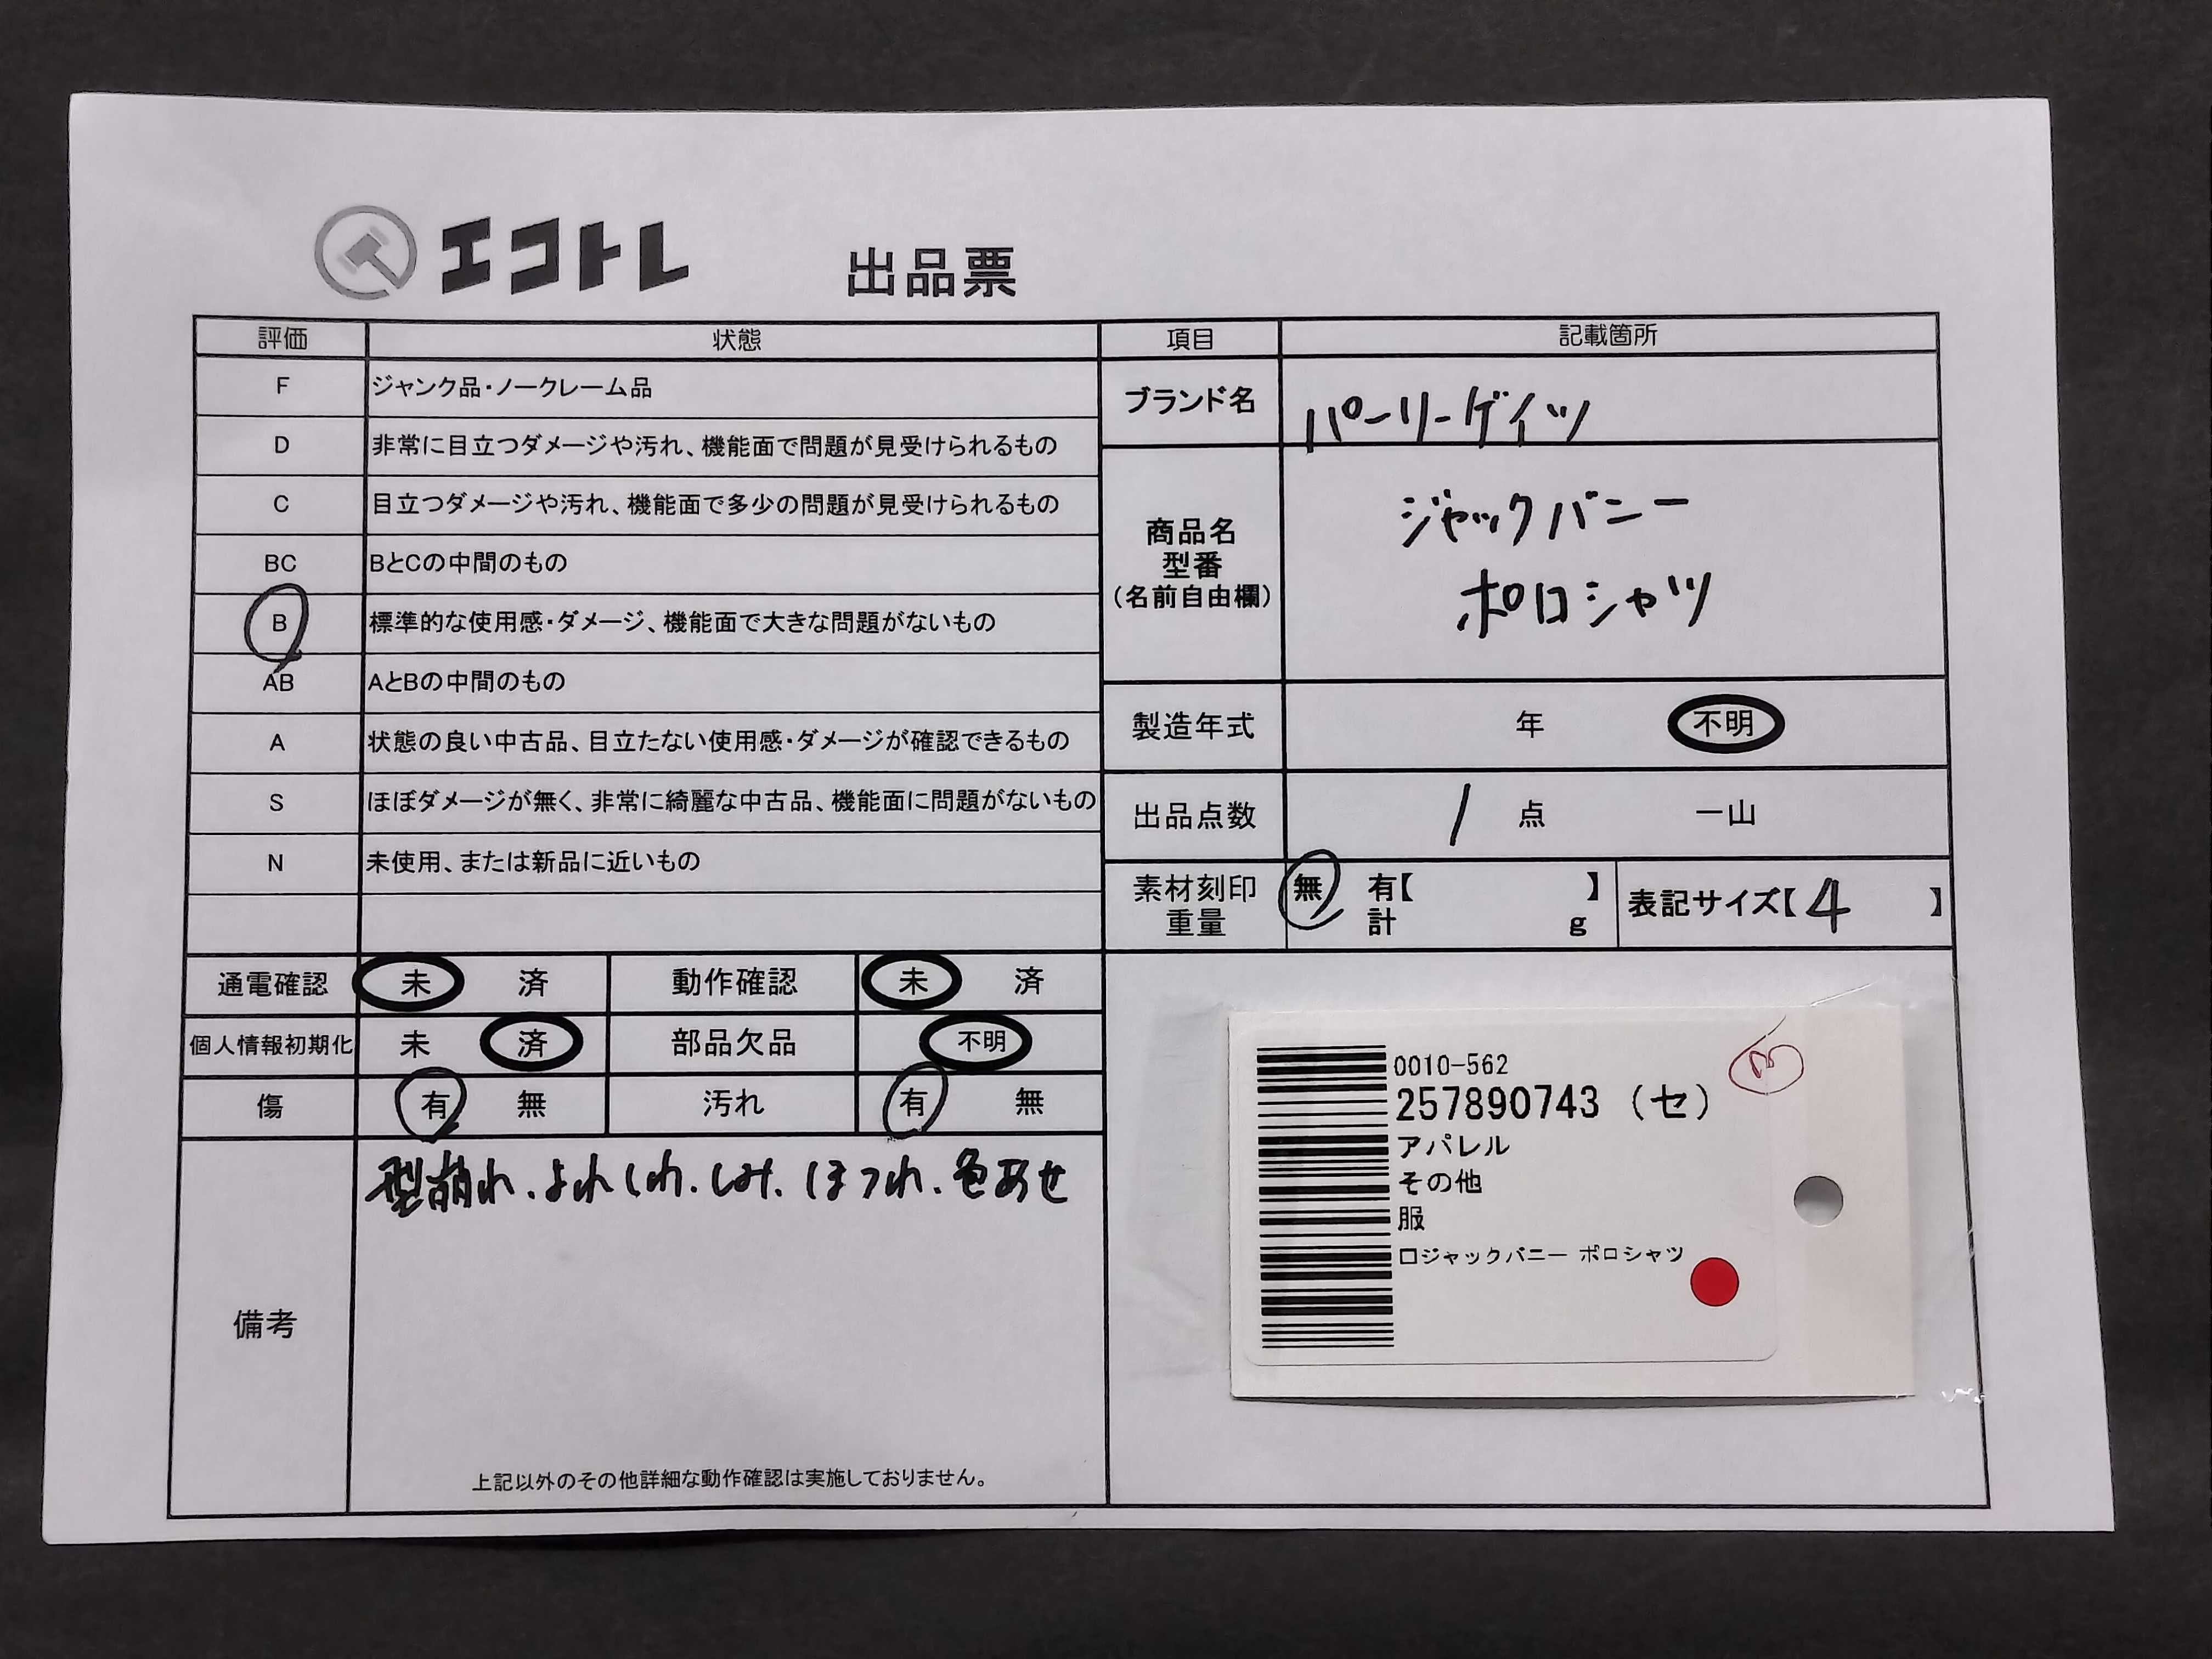 エコトレ 出品票
評価 状態
F ジャンク品・ノークレーム品
D 非常に目立つダメージや汚れ、機能面で問題が見受けられるもの
C 目立つダメージや汚れ、機能面で多少の問題が見受けられるもの
BC BとCの中間のもの
B 標準的な使用感・ダメージ、機能面で大きな問題がないもの
AB AとBの中間のもの
A 状態の良い中古品、目立たない使用感・ダメージが確認できるもの
S ほぼダメージが無く、非常に綺麗な中古品、機能面に問題がないもの
N 未使用、または新品に近いもの
項目 記載箇所
ブランド名 パーリーゲイツ
商品名
型番
(名前自由欄)
ジャックバニー
ポロシャツ
製造年式 年 不明
出品点数 1 点 一山
素材刻印
重量
無 有【 】
計 g
表記サイズ【4 】
通電確認 未 済 動作確認 未 済
個人情報初期化 未 済 部品欠品 不明
傷 有 無 汚れ 有 無
備考
型崩れ、よれしわ、しみ、ほつれ、色あせ
上記以外のその他詳細な動作確認は実施しておりません。
0010-562
257890743 (セ)
アパレル
その他
服
口ジャックバニー ポロシャツ